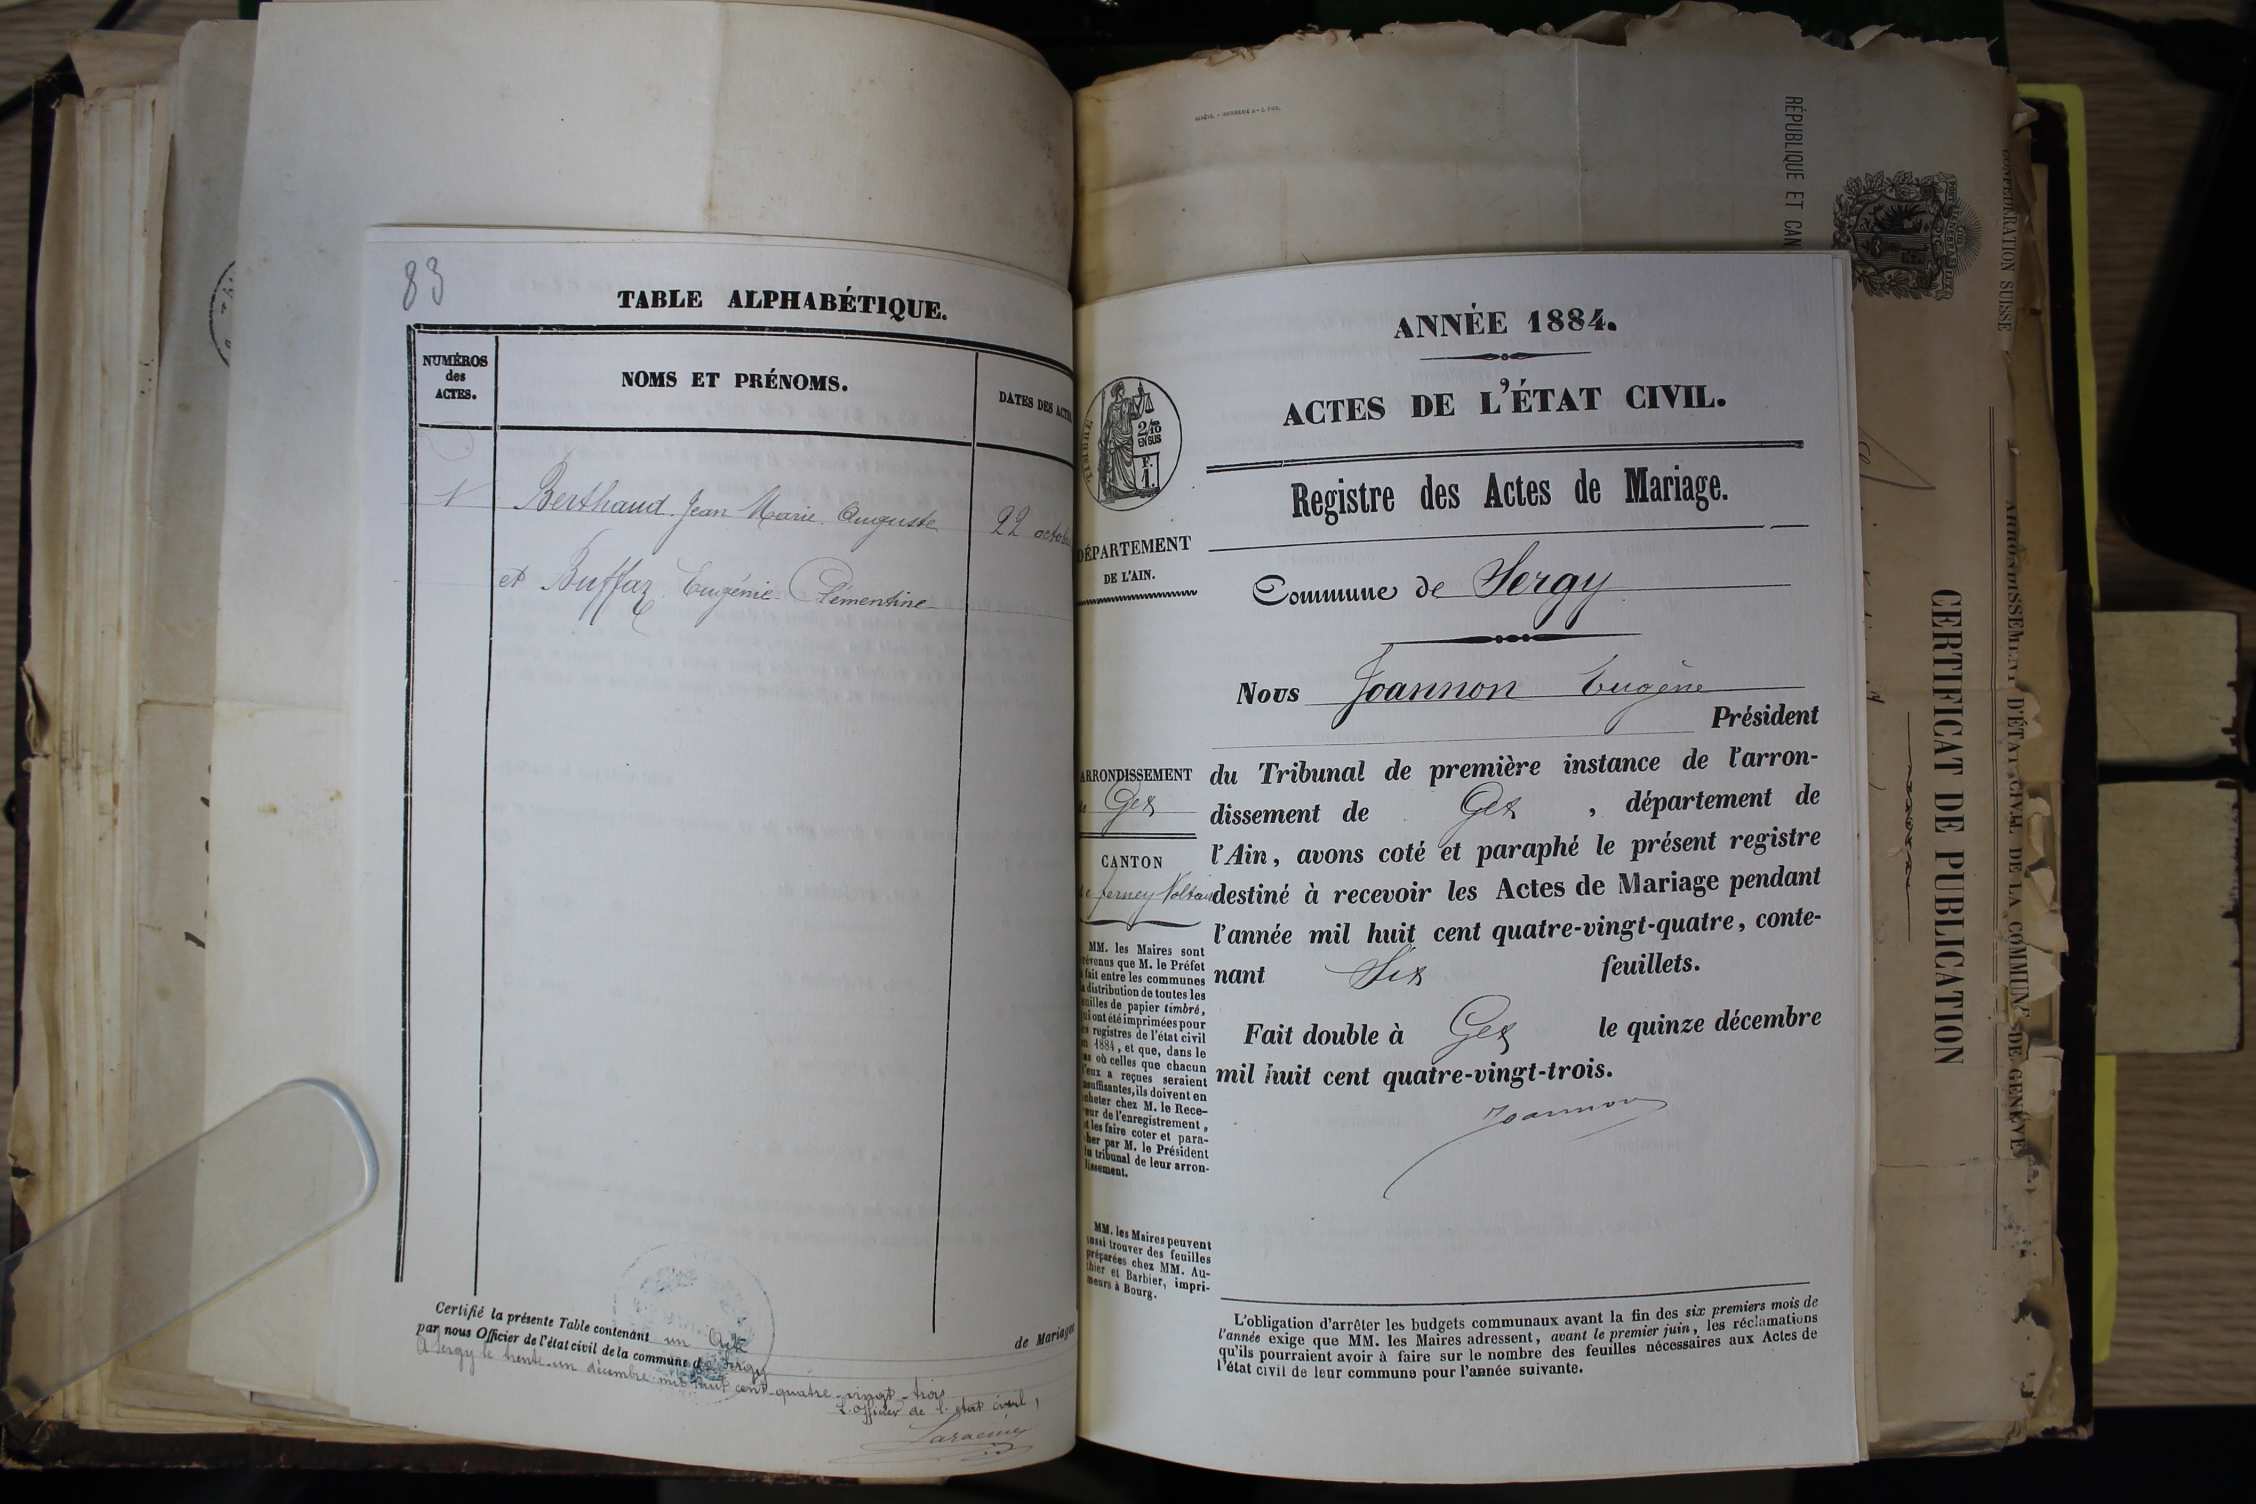 83
TABLE ALPHABÉTIQUE.
NUMÉROS
des
ACTES.
NOMS ET PRÉNOMS.
DATES DES ACTES
1
Berthaud Jean Marie Auguste
22 octobre
et Buffaz Eugénie Clémentine
Certifié la présente Table contenant un Acte
de Mariages
par nous Officier de l'état civil de la commune de Sergy
A Sergy le trente-un décembre mil huit cent quatre-vingt-trois
L'officier de l'état civil,
ANNÉE 1884.
ACTES DE L'ÉTAT CIVIL.
TIMBRE
2/10
EN SUS
F.
1.
Registre des Actes de Mariage.
DÉPARTEMENT
DE L'AIN.
Commune de Sergy
Nous Joannon Eugène
Président
ARRONDISSEMENT
de Gex
du Tribunal de première instance de l'arron-
dissement de Gex, département de
l'Ain, avons coté et paraphé le présent registre
CANTON
de Ferney Voltaire
destiné à recevoir les Actes de Mariage pendant
l'année mil huit cent quatre-vingt-quatre, conte-
nant Six feuillets.
Fait double à Gex le quinze décembre
mil huit cent quatre-vingt-trois.
Joannon
MM. les Maires sont
prévenus que M. le Préfet
a fait entre les communes
la distribution de toutes les
feuilles de papier timbré,
qui ont été imprimées pour
les registres de l'état civil
en 1884, et que, dans le
cas où celles que chacun
d'eux a reçues seraient
insuffisantes, ils doivent en
acheter chez M. le Rece-
veur de l'enregistrement,
et les faire coter et para-
pher par M. le Président
du tribunal de leur arron-
dissement.
MM. les Maires peuvent
aussi trouver des feuilles
préparées chez MM. Au-
thier et Barbier, impri-
meurs à Bourg.
L'obligation d'arrêter les budgets communaux avant la fin des six premiers mois de
l'année exige que MM. les Maires adressent, avant le premier juin, les réclamations
qu'ils pourraient avoir à faire sur le nombre des feuilles nécessaires aux Actes de
l'état civil de leur commune pour l'année suivante.
RÉPUBLIQUE ET CAN
CONFÉDÉRATION SUISSE
ARRONDISSEMENT D'ÉTAT CIVIL DE LA COMMUNE DE GENÈVE
CERTIFICAT DE PUBLICATION